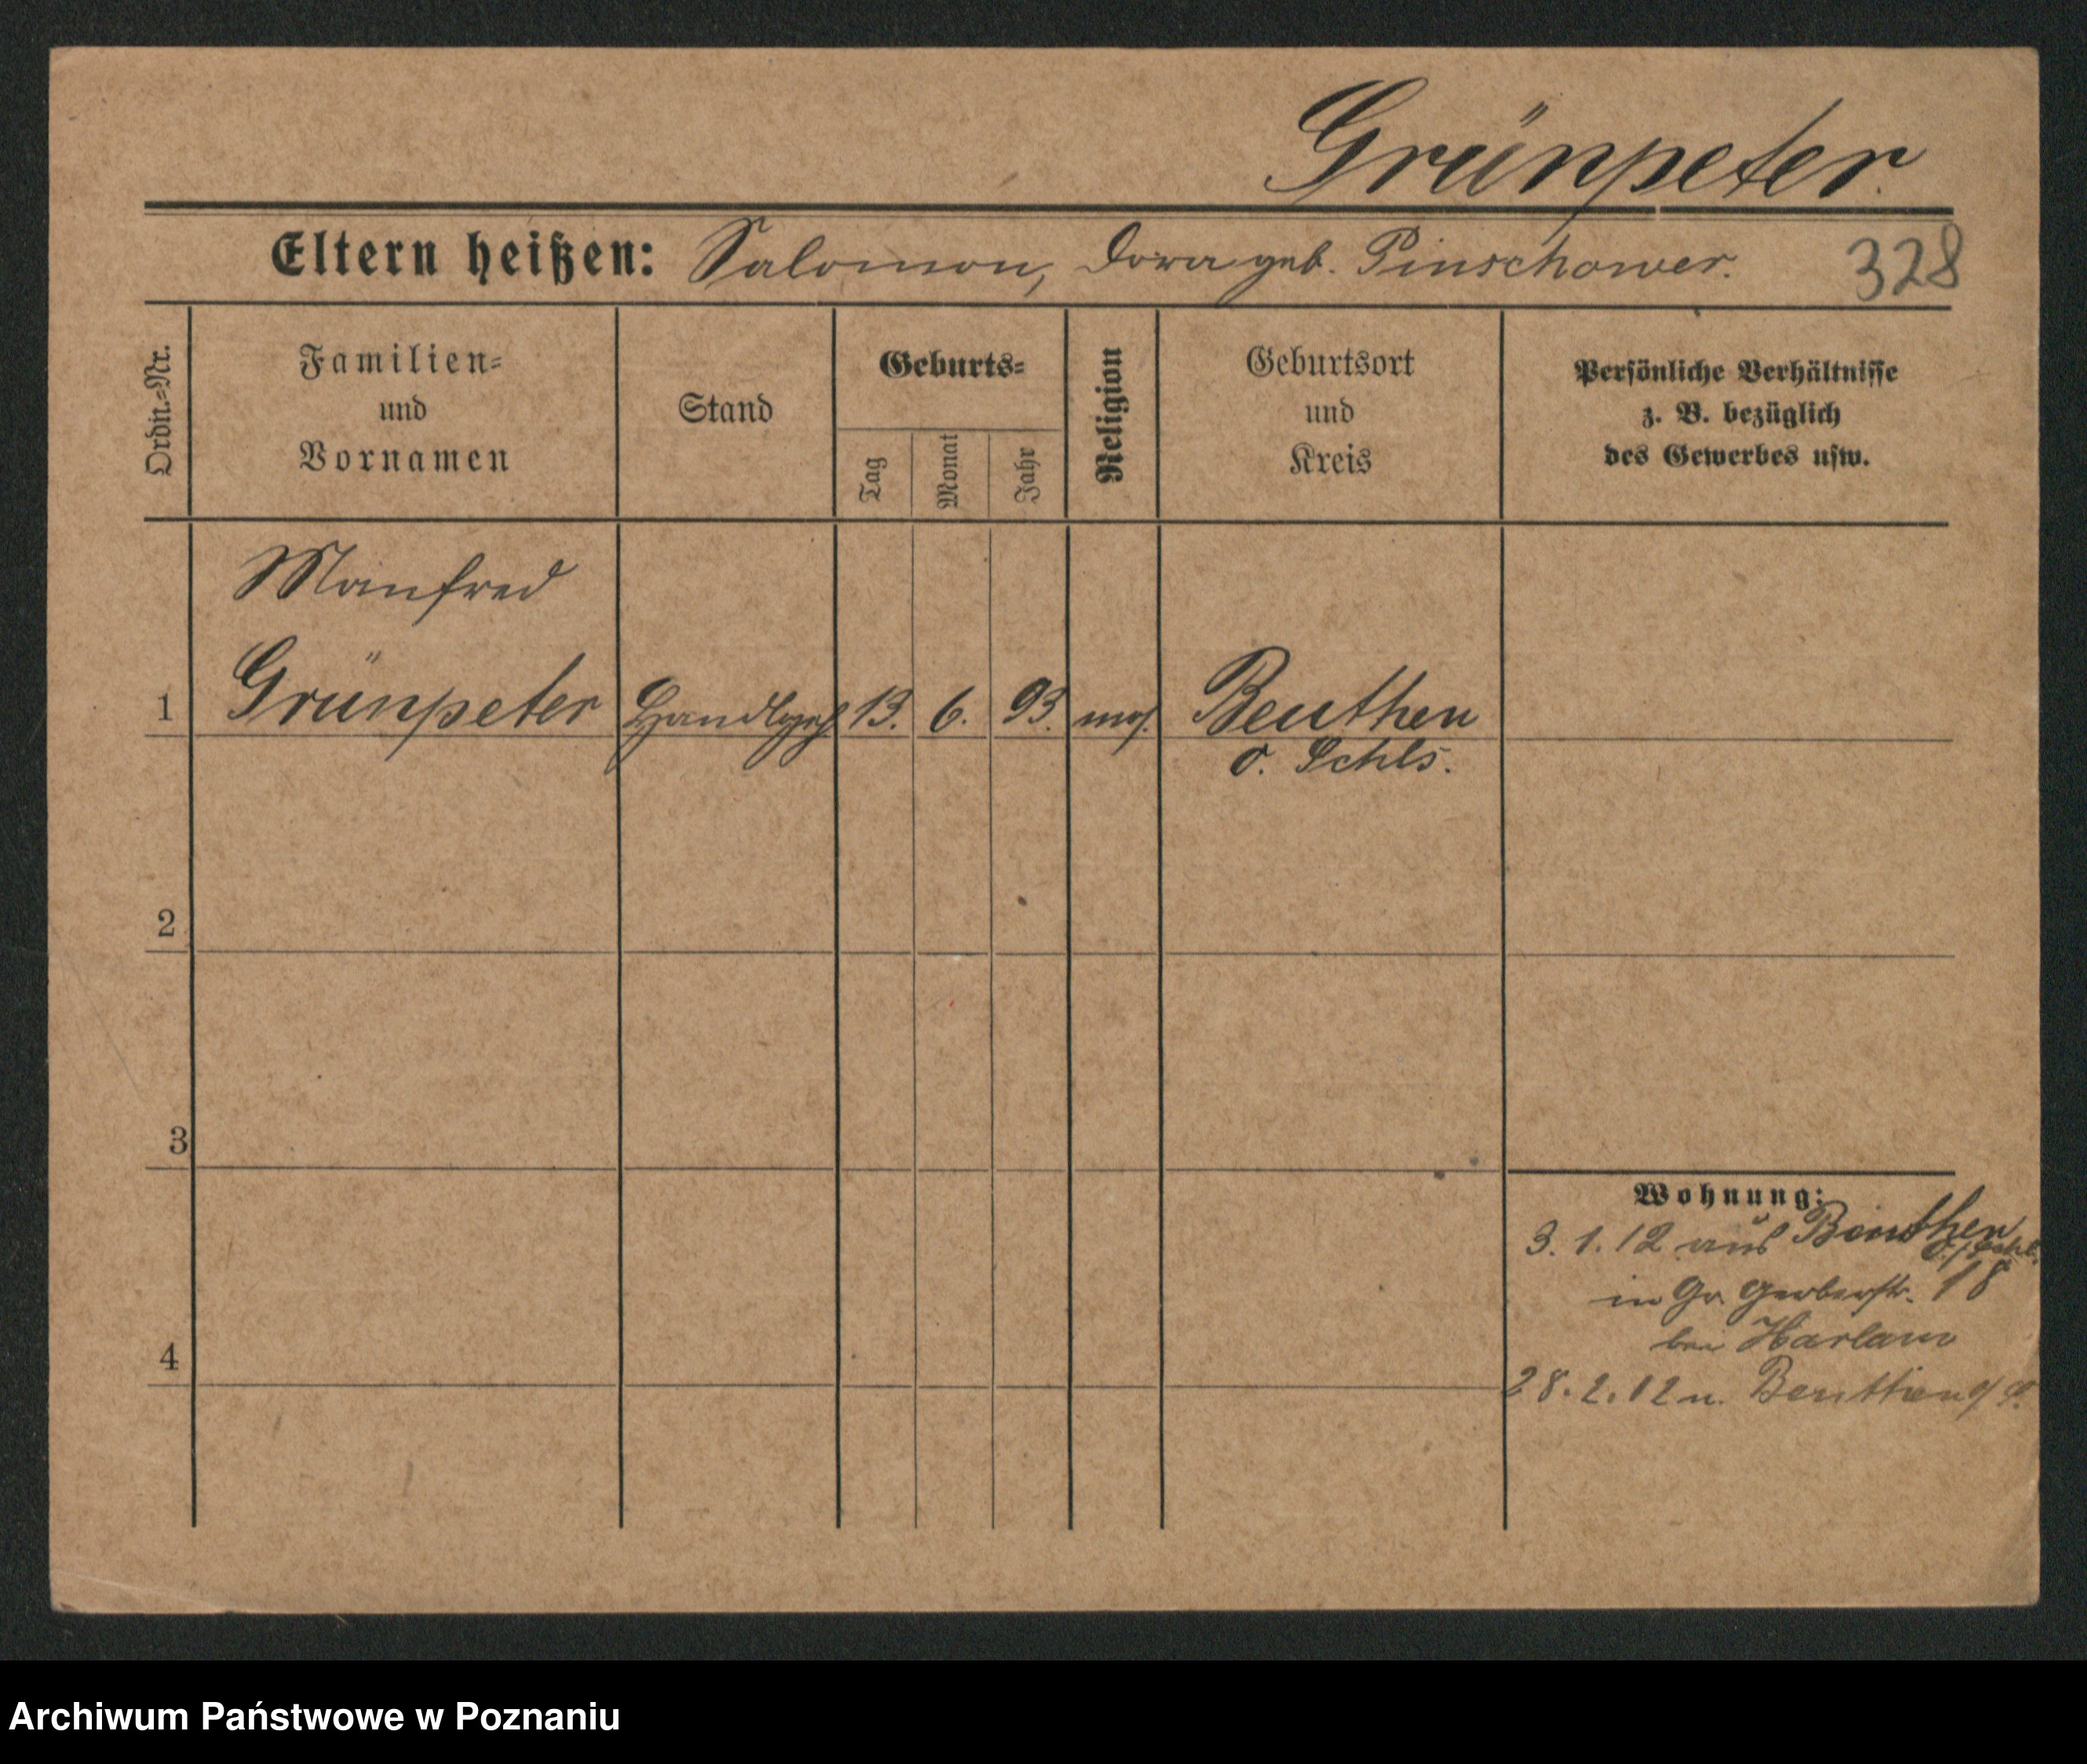 Grünpeter.
Eltern heißen: Salomon, Dora geb. Pinschower. 328
Ordn.=Nr.
Familien=
und
Vornamen
Stand
Geburts=
Tag
Monat
Jahr
Religion
Geburtsort
und
Kreis
Persönliche Verhältnisse
z. B. bezüglich
des Gewerbes usw.
Manfred
1 Grünpeter Handlgsgeh 13. 6. 93. mos. Beuthen
O. Schls.
2
3
Wohnung:
3. 1. 12 aus Beuthen
O./Schl.
in Gr. Gerberstr. 18
bei Harlam
4
28. 2. 12 n. Beuthen o/S.
Archiwum Państwowe w Poznaniu